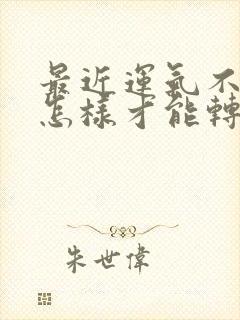 最近運氣不
怎樣才能轉
朱世偉